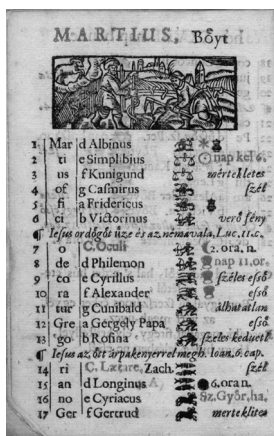 MARTIUS, Bőyt
1 Mar d Albinus
2 ti e Simplibius nap kel 6.
3 us f Kunigund mértekletes
4 of g Casmirus szél
5 fi a Fridericus
6 ci b Victorinus verő fény
¶ Iesus ördögöt üze és az néma vala, Luc. 11. c.
7 o C. Oculi 2. ora n.
8 de d Philemon nap 11. or.
9 co e Cyrillus széles eső
10 ra f Alexander eső
11 tur g Cunibald álhatatlan
12 Gre a Gergely Papa eső
13 go b Rosina szeles keduetl
¶ Iesus az őtt árpakenyerrel megh. Ioan. 6. cap.
14 ri C. Lætare, Zach. szél
15 an d Longinus 6. ora n.
16 no e Cyriacus Sz. Győr, ha.
17 Ger f Gertrud mertekletes